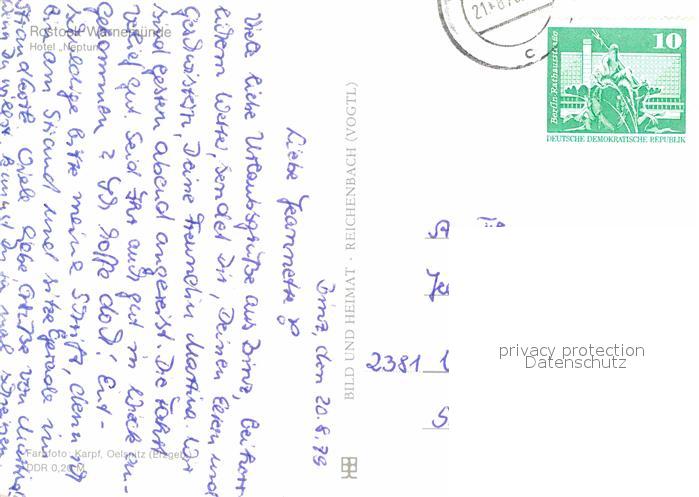 Rostock-Warnemünde
Hotel „Neptun"
Binz, den 20.8.79
Liebe Jeannette!
Viele liebe Urlaubsgrüße aus Binz, bei
Wetter, sendet Dir, Deinen Eltern und
Geschwistern, Deine Freundin Martina. Wir
sind gestern abend angereist. Die Fahrt
verlief gut. Seid Ihr auch gut in Wieck an-
gekommen? Ich hoffe doch! Ent-
schuldige bitte meine Schrift, denn ich
bin am Strand und sitze gerade im
Strandkorb. Viele liebe Grüße von Martina
Farbfoto: Karpf, Oelsnitz (Erzgeb.)
DDR 0,20 M
BILD UND HEIMAT · REICHENBACH (VOGTL)
21.8.79
c
10
Berlin-Rathausstraße
DEUTSCHE DEMOKRATISCHE REPUBLIK
2381
privacy protection
Datenschutz